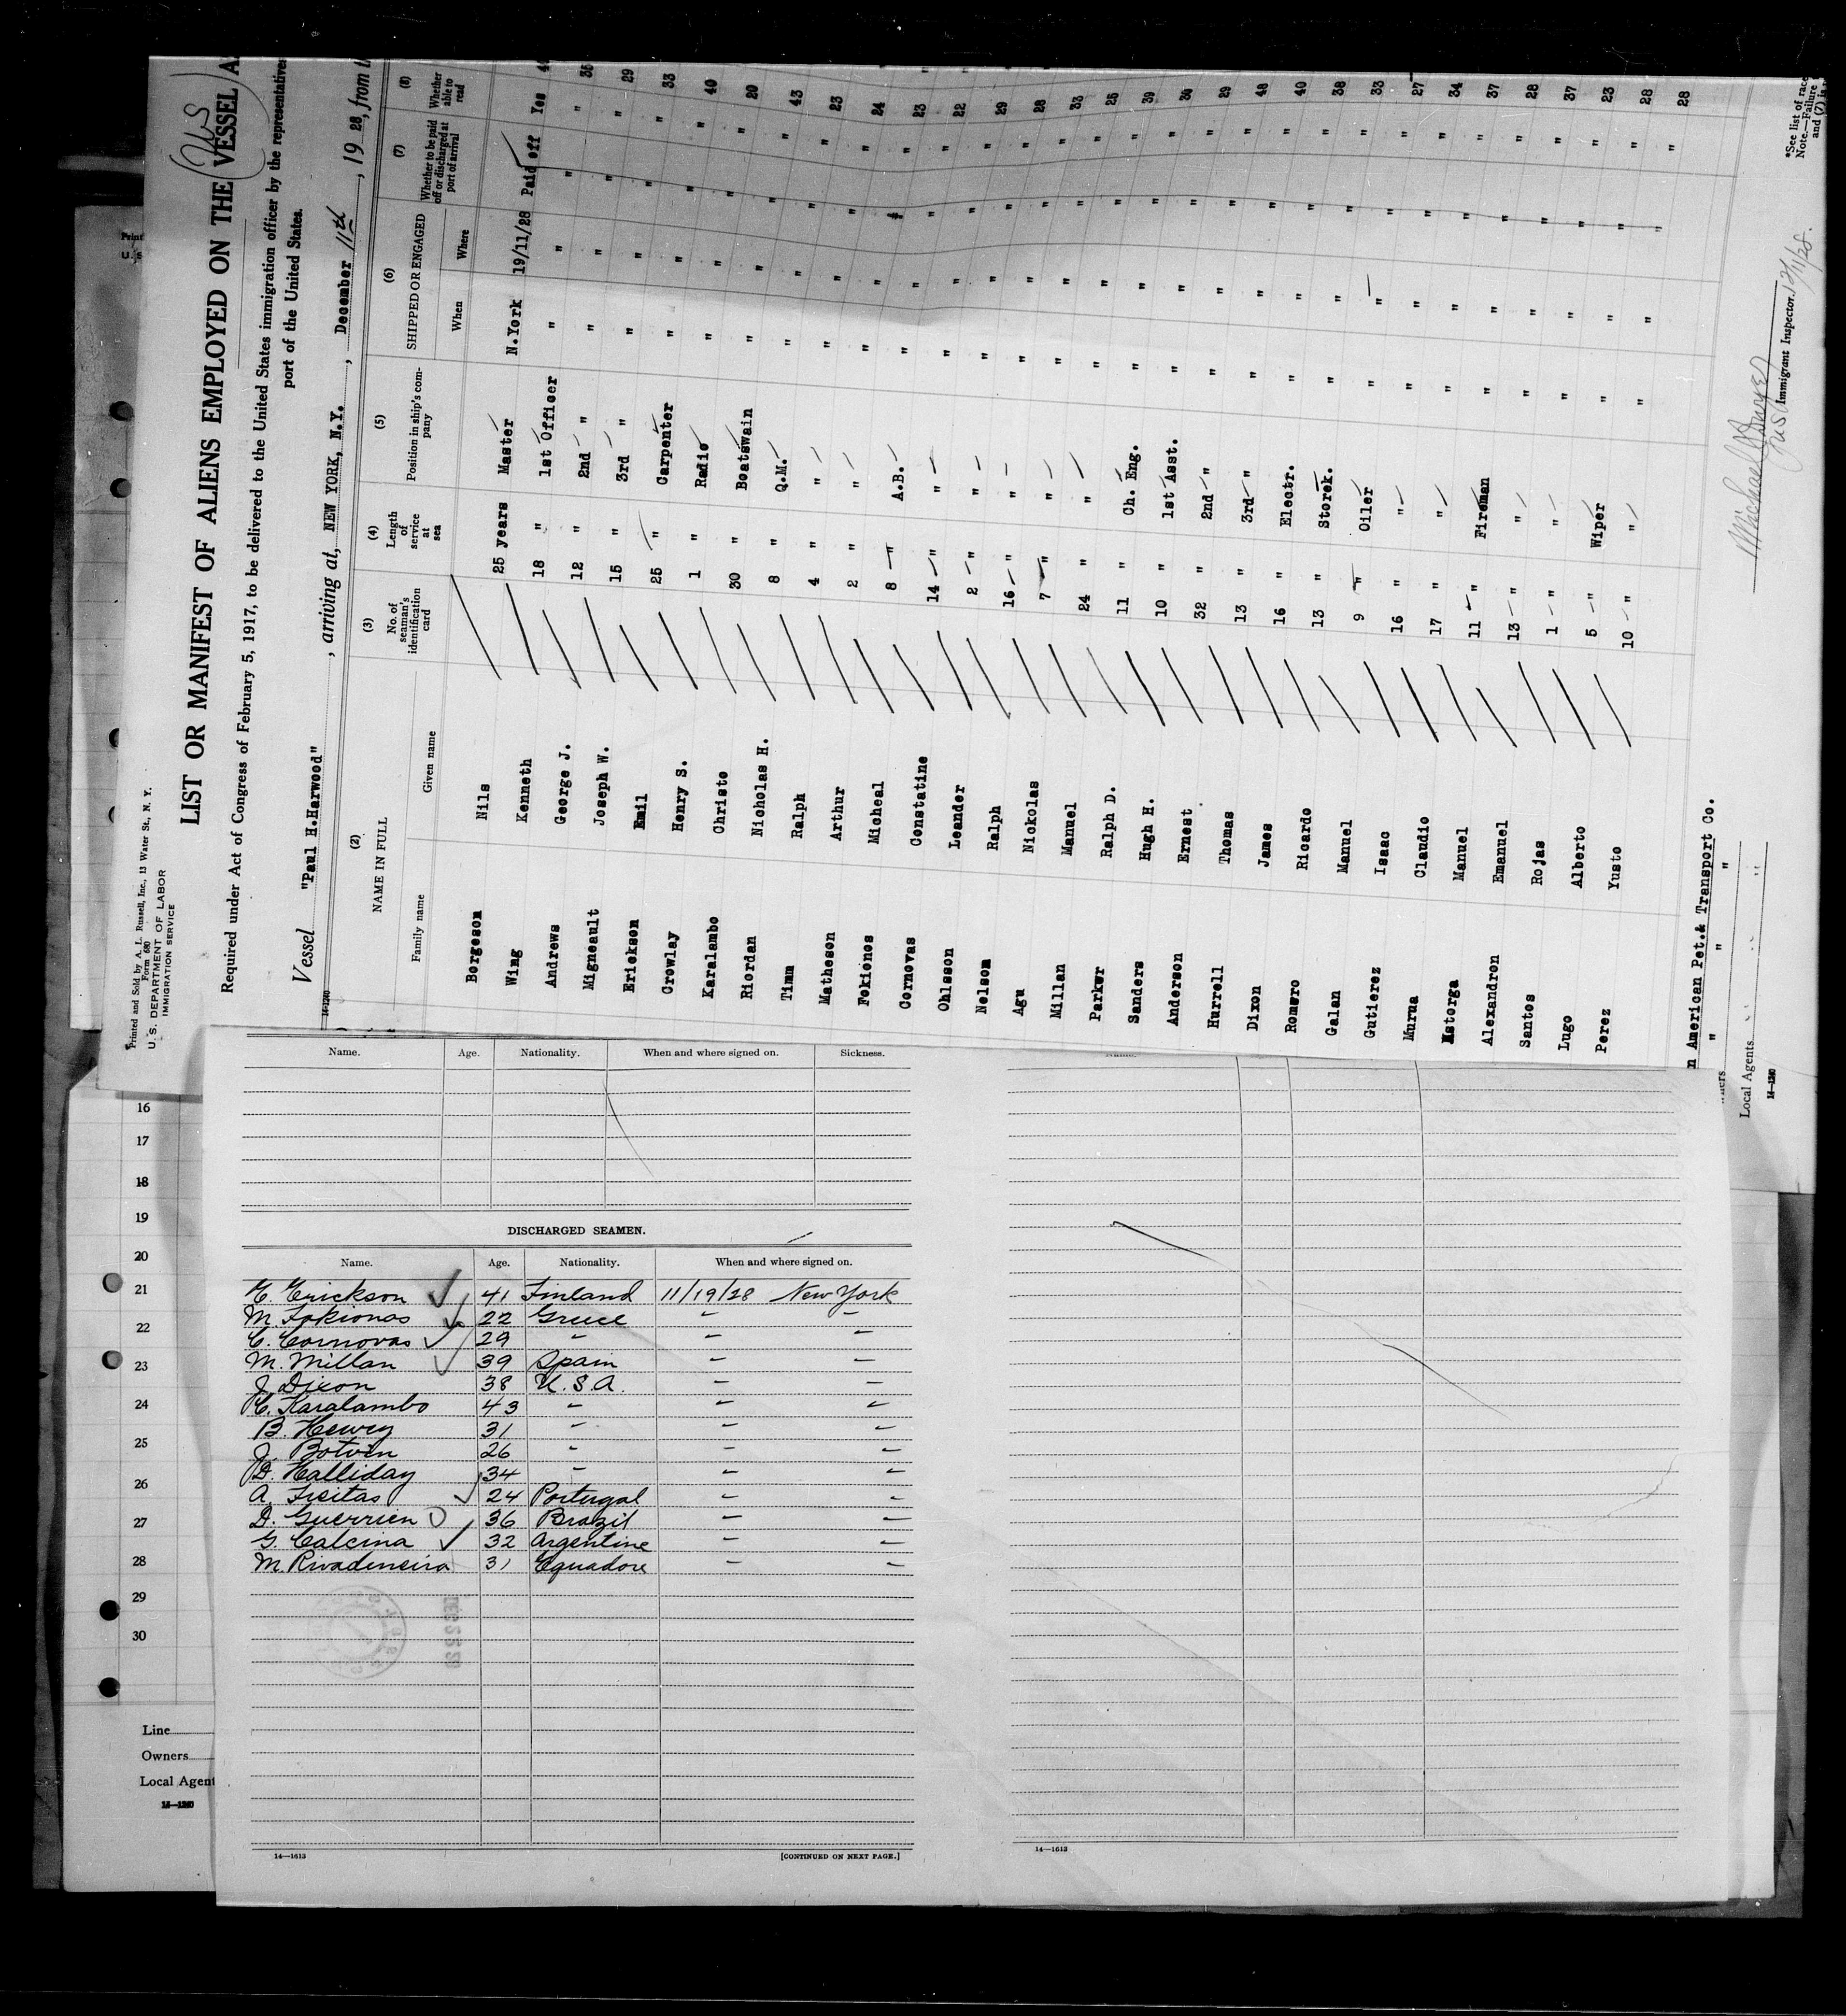 Printed and Sold by A. L. Russell, Inc., 13 Water St., N. Y.
Form 680
U. S. DEPARTMENT OF LABOR
IMMIGRATION SERVICE
(US)
LIST OR MANIFEST OF ALIENS EMPLOYED ON THE VESSEL
Required under Act of Congress of February 5, 1917, to be delivered to the United States immigration officer by the representatives
port of the United States.
Vessel "Paul H.Harwood", arriving at, NEW YORK, N.Y., December 11th, 19 28, from
(2) (3) (4) (5) (6) (7) (8)
NAME IN FULL No. of seaman's identification card Length of service at sea Position in ship's company SHIPPED OR ENGAGED Whether to be paid off or discharged at port of arrival Whether able to read
Family name Given name When Where
Borgeson Nils 25 years Master N.York 19/11/28 Paid off Yes
Wing Kenneth 18 " 1st Officer " " " " 35
Andrews George J. 12 " 2nd " " " " " 29
Migneault Joseph W. 15 " 3rd " " " " " 33
Erickson Emil 25 " Carpenter " " " " 40
Crowley Henry S. 1 " Radio " " " " 20
Karalambo Christo 30 " Boatswain " " " " 43
Riordan Nicholas H. 8 " Q.M. " " " " 23
Timm Ralph 4 " " " " " " 24
Matheson Arthur 2 " " " " " " 23
Fokiones Micheal 8 " A.B. " " " " 22
Cornovas Constatine 14 " " " " " " 29
Ohlsson Leander 2 " " " " " " 28
Nelson Ralph 16 " " " " " " 33
Agu Nickolas 7 " " " " " " 25
Millan Manuel 24 " " " " " " 39
Parker Ralph D. 11 " Ch. Eng. " " " " 36
Sanders Hugh H. 10 " 1st Asst. " " " " 29
Anderson Ernest 32 " 2nd " " " " " 48
Hurrell Thomas 13 " 3rd " " " " " 40
Dixon James 16 " Electr. " " " " 38
Romero Ricardo 13 " Storek. " " " " 33
Galan Manuel 9 " Oiler " " " " 27
Gutierez Isaac 16 " " " " " " 34
Murua Claudio 17 " " " " " " 37
Astorga Manuel 11 " Fireman " " " " 28
Alexandron Emanuel 13 " " " " " " 37
Santos Rojas 1 " " " " " " 23
Lugo Alberto 5 " Wiper " " " " 28
Perez Yusto 10 " " " " " " 28
n American Pet.& Transport Co.
" " "
Local Agents
14—1240
Immigrant Inspector.
*See list of race
Note.—Failure
and (7) is
Name. Age. Nationality. When and where signed on. Sickness.
DISCHARGED SEAMEN.
Name. Age. Nationality. When and where signed on.
E. Erickson 41 Finland 11/19/28 New York
M. Fokionas 22 Greece " "
C. Cornovas 29 " " "
M. Millan 39 Spain " "
J. Dixon 38 U.S.A. " "
C. Karalambo 43 " " "
B. Hewry 31 " " "
J. Botvin 26 " " "
D. Halliday 34 " " "
A. Freitas 24 Portugal " "
D. Guerrien 36 Brazil " "
G. Calcina 32 Argentine " "
M. Rivadeneira 31 Equadore " "
14—1613
[CONTINUED ON NEXT PAGE.]
14—1613
16
17
18
19
20
21
22
23
24
25
26
27
28
29
30
Line
Owners
Local Agent
14—1240